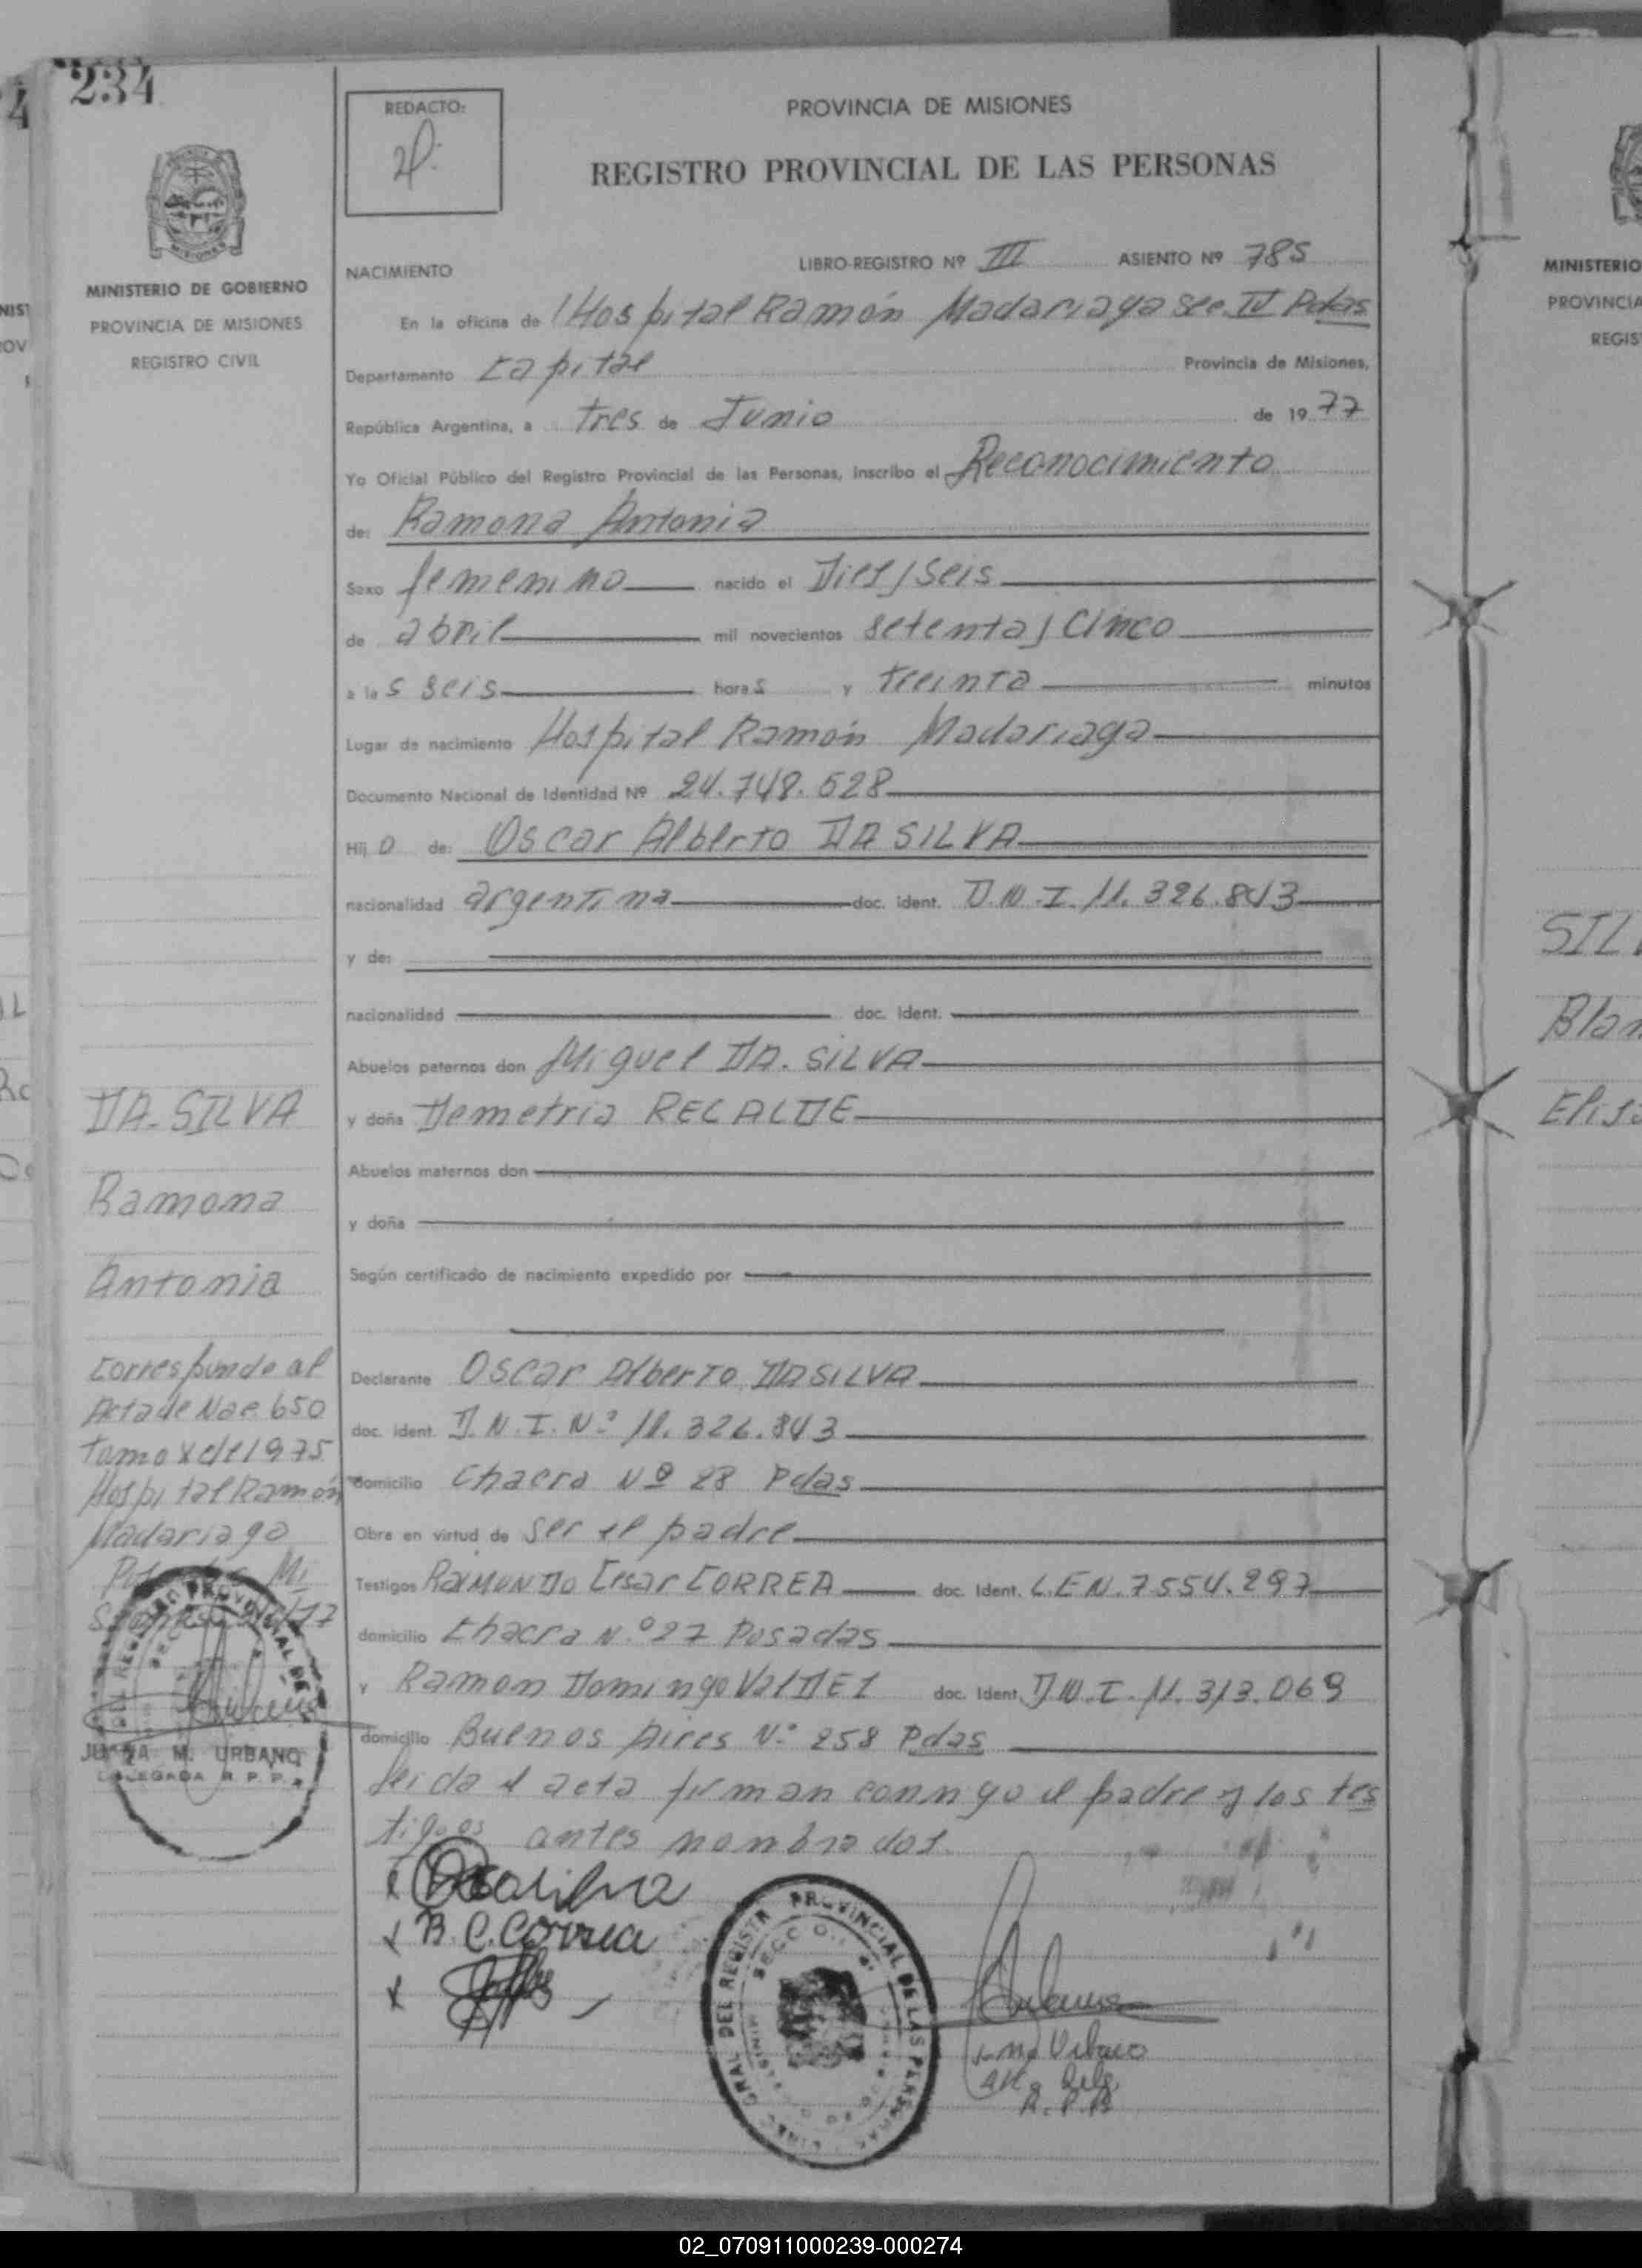 234
REDACTO:
PROVINCIA DE MISIONES
REGISTRO PROVINCIAL DE LAS PERSONAS
MINISTERIO DE GOBIERNO
PROVINCIA DE MISIONES
REGISTRO CIVIL
NACIMIENTO LIBRO-REGISTRO Nº III ASIENTO Nº 785
En la oficina de Hospital Ramón Madariaga Sec. IV Pdas
Departamento Capital Provincia de Misiones,
República Argentina, a tres de Junio de 1977
Yo Oficial Público del Registro Provincial de las Personas, inscribo el Reconocimiento
de: Ramona Antonia
Sexo femenino nacido el Diez y seis
de abril mil novecientos setenta y cinco
a las seis horas y treinta minutos
Lugar de nacimiento Hospital Ramón Madariaga
Documento Nacional de Identidad Nº 24.748.628
Hij a de: Oscar Alberto DA SILVA
nacionalidad argentina doc. ident. D.N.I. 11.326.843
y de:
nacionalidad doc. ident.
Abuelos paternos don Miguel DA. SILVA
y doña Demetria RECALDE
Abuelos maternos don
y doña
Según certificado de nacimiento expedido por
Declarante Oscar Alberto DA SILVA
doc. ident. D.N.I. Nº 11.326.843
domicilio Chacra Nº 28 Pdas
Obra en virtud de ser el padre
Testigos RAIMUNDO Cesar CORREA doc. ident. L.E N. 7554.297
domicilio Chacra N.º 27 Posadas
y Ramon Domingo ValDEZ doc. ident. D.N.I. 11.313.069
domicilio Buenos Aires Nº 258 Pdas
leida el acta firman conmigo el padre y los tes
tigos antes nombrados.
DA. SILVA
Ramona
Antonia
Corresponde al
Acta de Nac. 650
Tomo X del 1975
Hospital Ramón
Madariaga
JUANA M. URBANO
DELEGADA R. P. P.
B. C. Correa
GRAL DEL REGISTR PROVINCIAL DE LAS PERSONAS
Urbano
R. P. P.
MINISTERIO
PROVINCIA
REGIS
SIL
Blan
Elisa
02_070911000239-000274